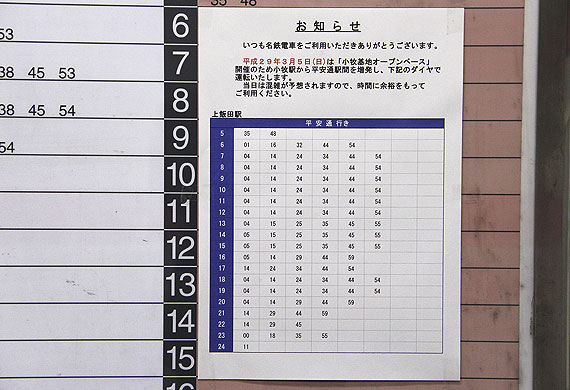 35 48
53
38 45 53
38 45 54
54
6
7
8
9
10
11
12
13
14
15
お知らせ
いつも名鉄電車をご利用いただきありがとうございます。
平成29年3月5日(日)は「小牧基地オープンベース」
開催のため小牧駅から平安通駅間を増発し、下記のダイヤで
運転いたします。
当日は混雑が予想されますので、時間に余裕をもって
ご利用ください。
上飯田駅
平安通行き
5 35 48
6 01 16 32 44 54
7 04 14 24 34 44 54
8 04 14 24 34 44 54
9 04 14 24 34 44 54
10 04 14 24 34 44 54
11 04 14 24 34 44 54
12 04 14 24 34 44 54
13 04 15 25 35 45 55
14 05 15 25 35 45 55
15 05 15 25 35 45 55
16 05 14 29 44 59
17 14 24 34 44 54
18 04 14 24 34 44 54
19 04 14 24 34 44 54
20 04 14 29 44 59
21 14 29 44 59
22 14 29 45
23 00 18 35 55
24 11